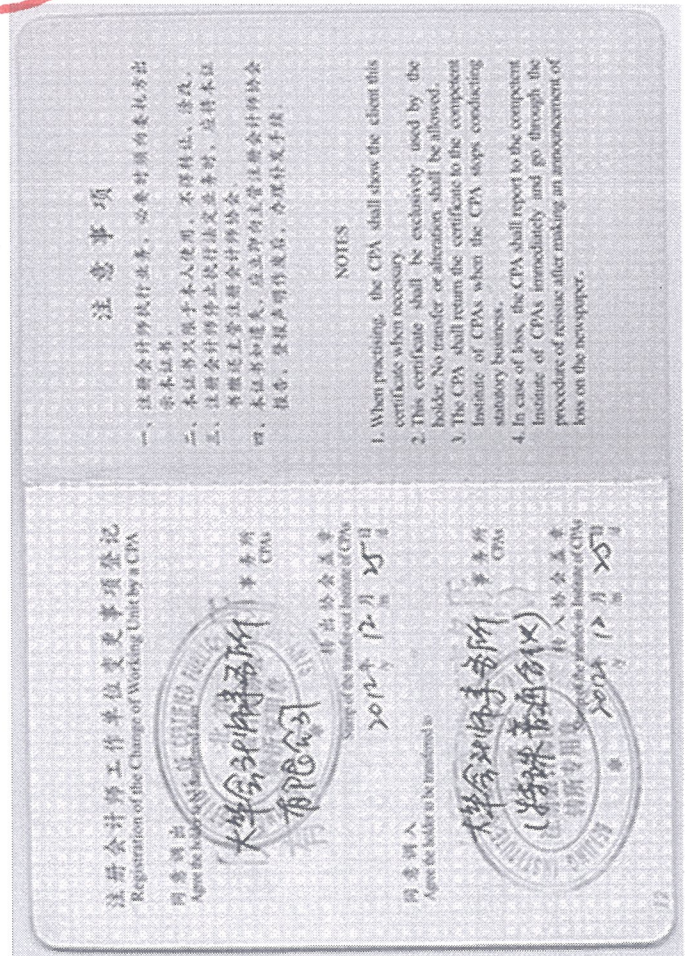 注册会计师工作单位变更事项登记
Registration of the Change of Working Unit by a CPA
同意调出
Agree the holder to be transferred from
大华会计师事务所
有限公司
事务所
CPAs
转出协会盖章
Stamp of the transfer-out Institute of CPAs
2012年 12月 25日
同意调入
Agree the holder to be transferred to
大华会计师事务所
(特殊普通合伙)
事务所
CPAs
转入协会盖章
Stamp of the transfer-in Institute of CPAs
2012年 12月 25日
转所专用章
12
注意事项
一、注册会计师执行业务，必要时须向委托方出
示本证书。
二、本证书只限于本人使用，不得转让、涂改。
三、注册会计师停止执行法定业务时，应将本证
书缴还主管注册会计师协会。
四、本证书如遗失，应立即向主管注册会计师协会
报告，登报声明作废后，办理补发手续。
NOTES
1. When practising, the CPA shall show the client this
certificate when necessary.
2. This certificate shall be exclusively used by the
holder. No transfer or alteration shall be allowed.
3. The CPA shall return the certificate to the competent
Institute of CPAs when the CPA stops conducting
statutory business.
4. In case of loss, the CPA shall report to the competent
Institute of CPAs immediately and go through the
procedure of reissue after making an announcement of
loss on the newspaper.